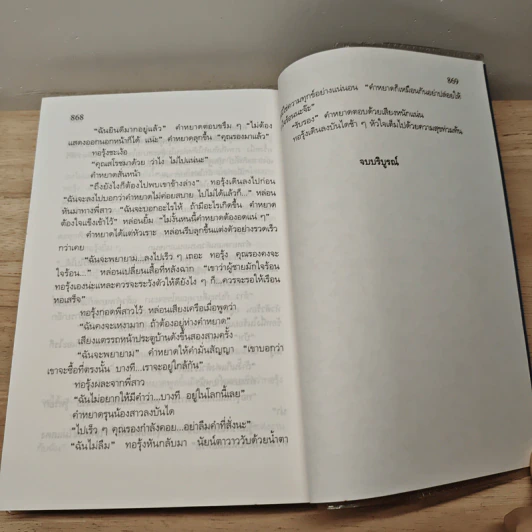 868
"ฉันยินดีมากอยู่แล้ว" คำหยาดตอบขรึม ๆ "ไม่ต้อง
แสดงออกนอกหน้าก็ได้ แน่ะ" คำหยาดลุกขึ้น "คุณรองมาแล้ว"
ทอรุ้งชะเง้อ
"คุณสโรชมาด้วย ว่าไง ไม่ไปแน่นะ"
คำหยาดสั่นหน้า
"ถึงยังไงก็ต้องไปพบเขาข้างล่าง" ทอรุ้งเดินลงไปก่อน
"ฉันจะลงไปบอกว่าคำหยาดไม่ค่อยสบาย ไปไม่ได้แล้วก็..." หล่อน
หันมาทางพี่สาว "ฉันจะบอกอะไรให้ ถ้ามีอะไรเกิดขึ้น คำหยาด
ต้องใจแข็งเข้าไว้" หล่อนยิ้ม "ไม่งั้นหนนี้คำหยาดต้องอดแน่ ๆ"
คำหยาดได้แต่หัวเราะ หล่อนรีบลุกขึ้นแต่งตัวอย่างรวดเร็ว
กว่าเคย
"ฉันจะพยายาม...ลงไปเร็ว ๆ เถอะ ทอรุ้ง คุณรองคงจะ
ใจร้อน..." หล่อนเปลี่ยนเสื้อที่หลังฉาก "เขาว่าผู้ชายมักใจร้อน
ทอรุ้งเองน่ะแหละควรจะระวังตัวให้ดียังไง ๆ ก็...ควรจะรอให้เรือน
หอเสร็จ"
ทอรุ้งกอดพี่สาวไว้ หล่อนเสียงเครือเมื่อพูดว่า
"ฉันคงจะเหงามาก ถ้าต้องอยู่ห่างคำหยาด"
เสียงแตรรถหน้าประตูบ้านดังขึ้นสองสามครั้ง
"ฉันจะพยายาม" คำหยาดให้คำมั่นสัญญา "เขาบอกว่า
เขาจะซื้อที่ตรงนั้น บางที...เราจะอยู่ใกล้กัน"
ทอรุ้งผละจากพี่สาว
"ฉันไม่อยากให้มีคำว่า...บางที อยู่ในโลกนี้เลย"
คำหยาดรุนน้องสาวลงบันได
"ไปเร็ว ๆ คุณรองกำลังคอย...อย่าลืมคำที่สั่งนะ"
"ฉันไม่ลืม" ทอรุ้งหันกลับมา นัยน์ตาวาววับด้วยน้ำตา
869
ความทุกข์อย่างแน่นอน "คำหยาดก็เหมือนกันอย่าปล่อยให้
"รับรอง" คำหยาดตอบด้วยเสียงหนักแน่น
ทอรุ้งเดินลงบันไดช้า ๆ หัวใจเต็มไปด้วยความสุขท่วมท้น
จบบริบูรณ์